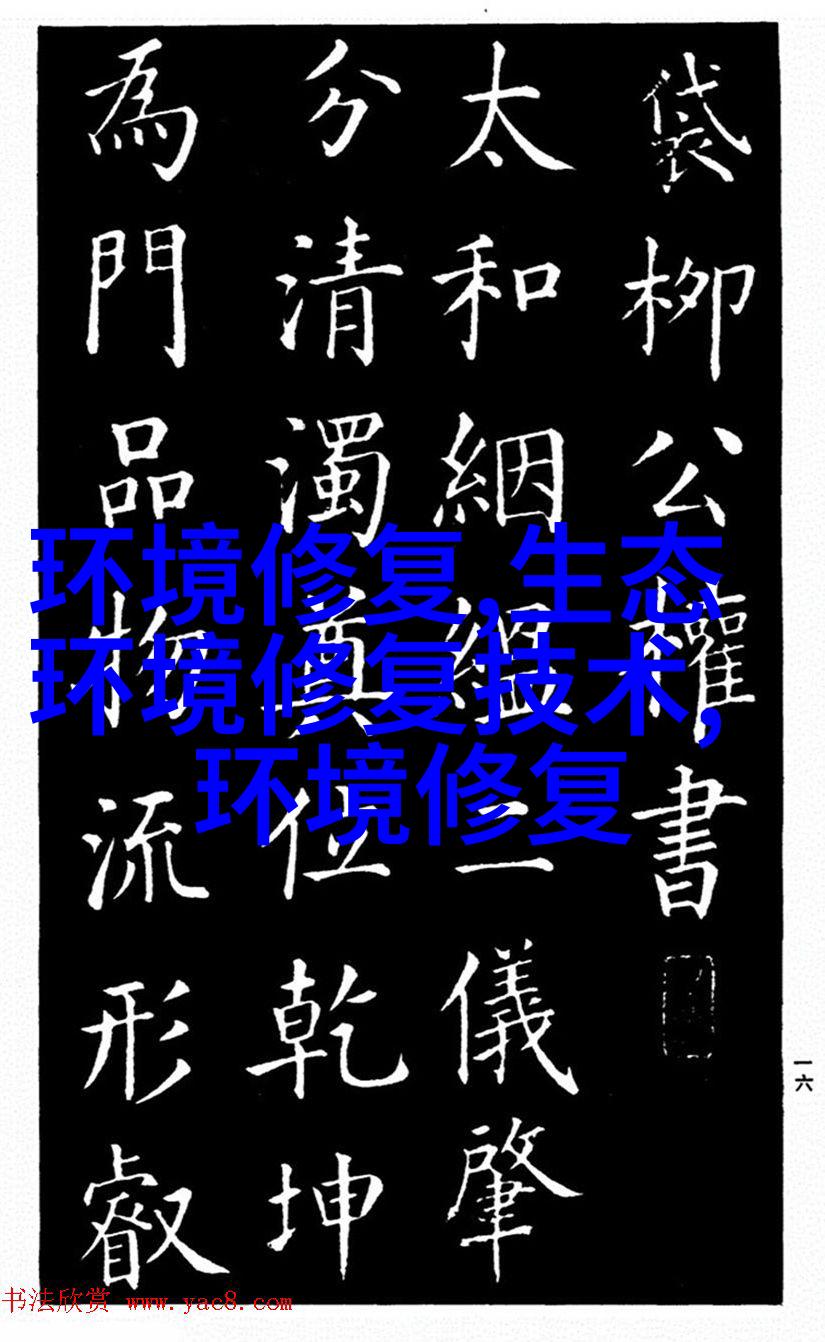 袋柳公權書
太和絪縕二儀肇
分清濁奠位乾坤
為門品物流形叡
环境修复,生态
环境修复技术,
环境修复
一六
书法欣赏 www.yac8.com